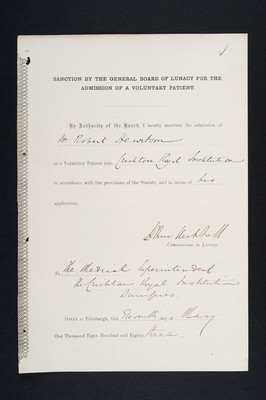 SANCTION BY THE GENERAL BOARD OF LUNACY FOR THE
ADMISSION OF A VOLUNTARY PATIENT.
By Authority of the Board, I hereby sanction the admission of
Mr Robert
as a Voluntary Patient into Crichton Royal Institution
in accordance with the provisions of the Statute, and in terms of his
application.
Commissioner in Lunacy.
To The Medical Superintendent
The Crichton Royal Institution
Dumfries.
GIVEN at Edinburgh, this Eleventh day of May
One Thousand Eight Hundred and Eighty